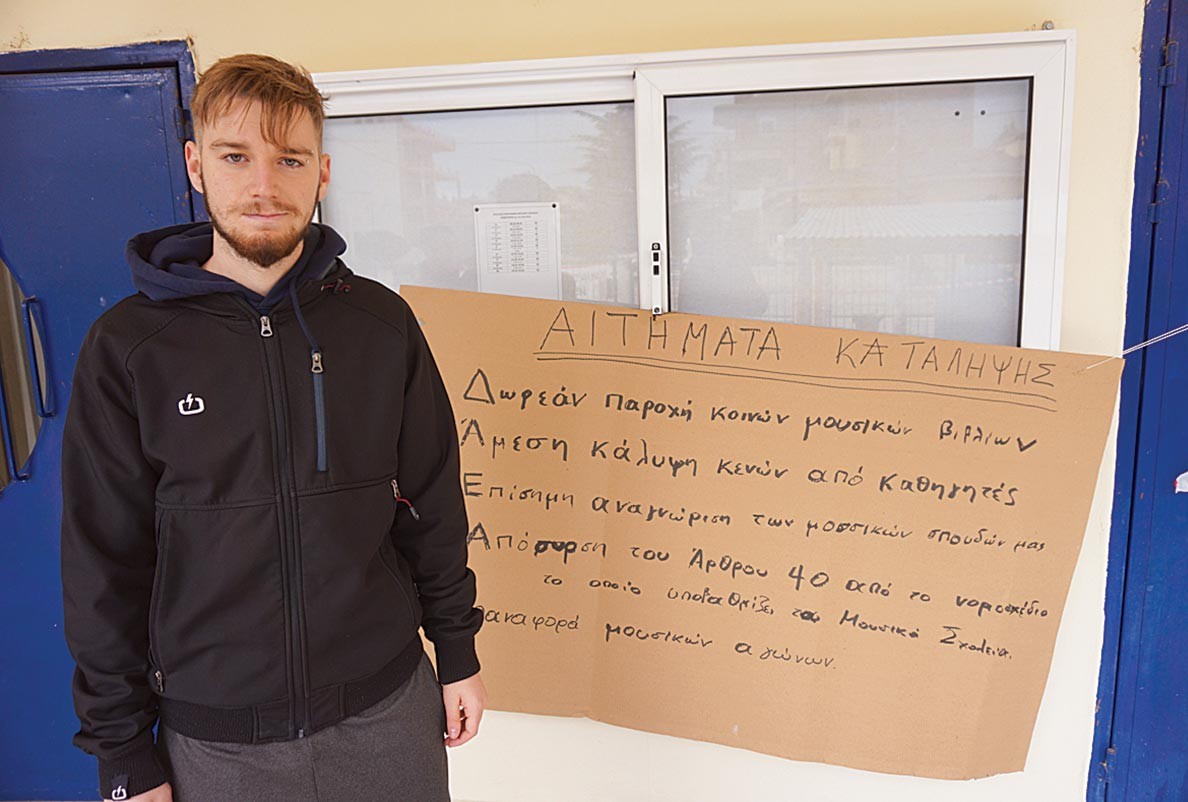 ΑΙΤΗΜΑΤΑ ΚΑΤΑΛΗΨΗΣ
Δωρεάν παροχή κοινών μουσικών βιβλίων
Άμεση κάλυψη κενών από καθηγητές
Επίσημη αναγνώριση των μουσικών σπουδών μας
Απόσυρση του Άρθρου 40 από το νομοσχέδιο
το οποίο υποβαθμίζει τα Μουσικά Σχολεία.
μουσικών αγώνων.